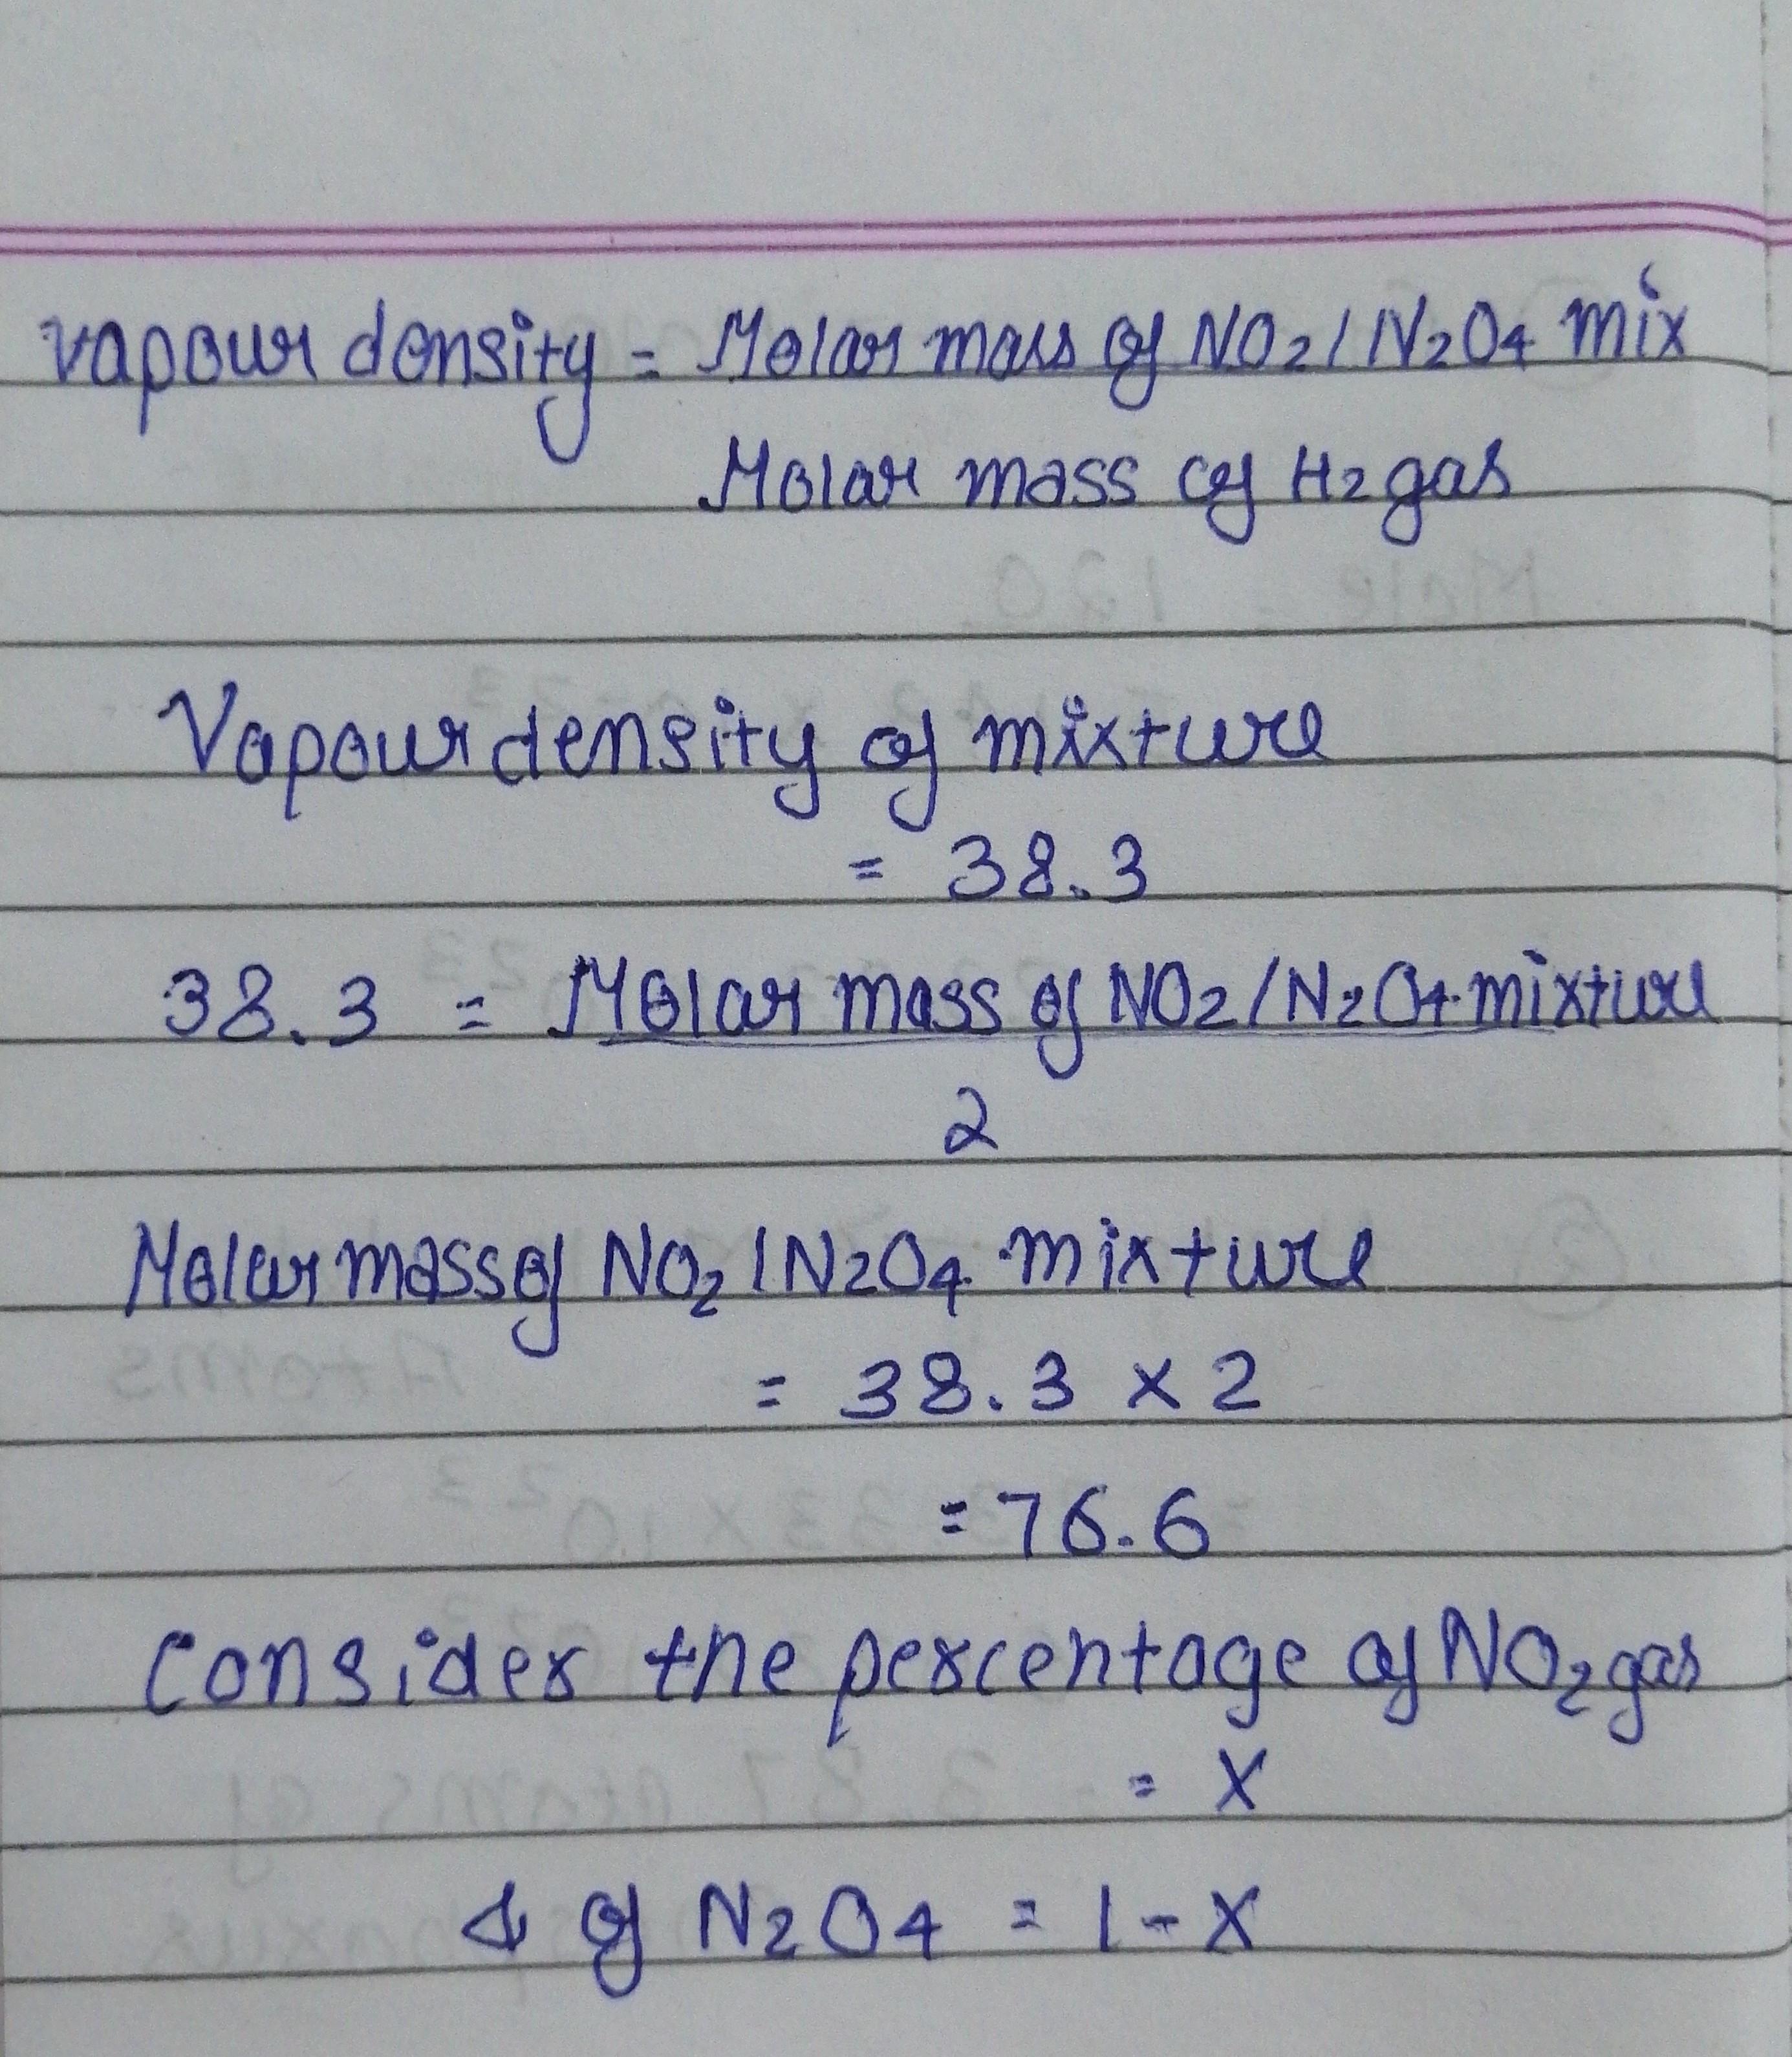 vapour density = Molar mass of NO2/N2O4 mix
Molar mass of H2 gas
Vapour density of mixture
= 38.3
38.3 = Molar mass of NO2/N2O4 mixture
2
Molar mass of NO2/N2O4 mixture
= 38.3 x 2
= 76.6
Consider the percentage of NO2 gas
= X
& of N2O4 = 1-X